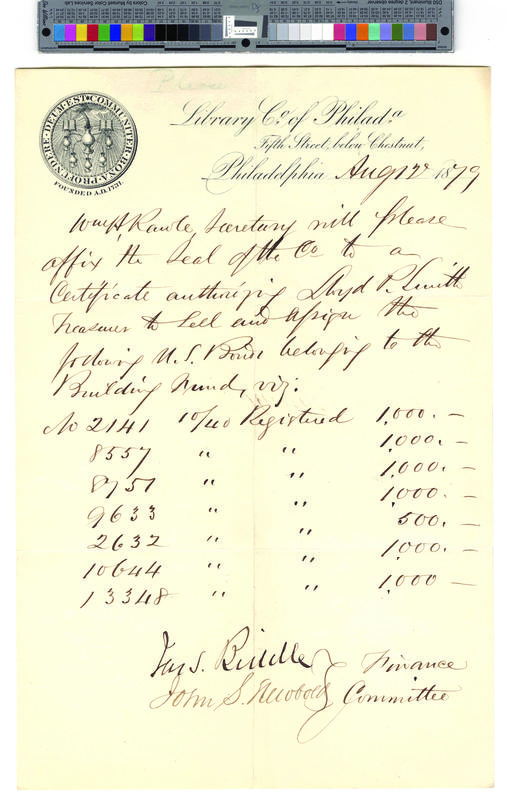 Please
COMMUNITER BONA PROFUNDERE DEUM EST
FOUNDED A.D. 1731.
Library Co. of Philada.
Fifth Street, below Chestnut,
Philadelphia Aug 12 1879
Wm H Rawle, Secretary will please
affix the Seal of the Co to a
Certificate authorizing Lloyd P. Smith
Treasurer to Sell and assign the
following U.S. Bonds belonging to the
Building Fund, viz:
No 2141 10/40 Registered 1,000. —
8557 " " 1,000. —
8751 " " 1,000. —
9633 " " 1,000. —
2632 " " 500. —
10644 " " 1,000. —
13348 " " 1,000 —
Jas. S. Biddle } Finance
John S. Newbold } Committee